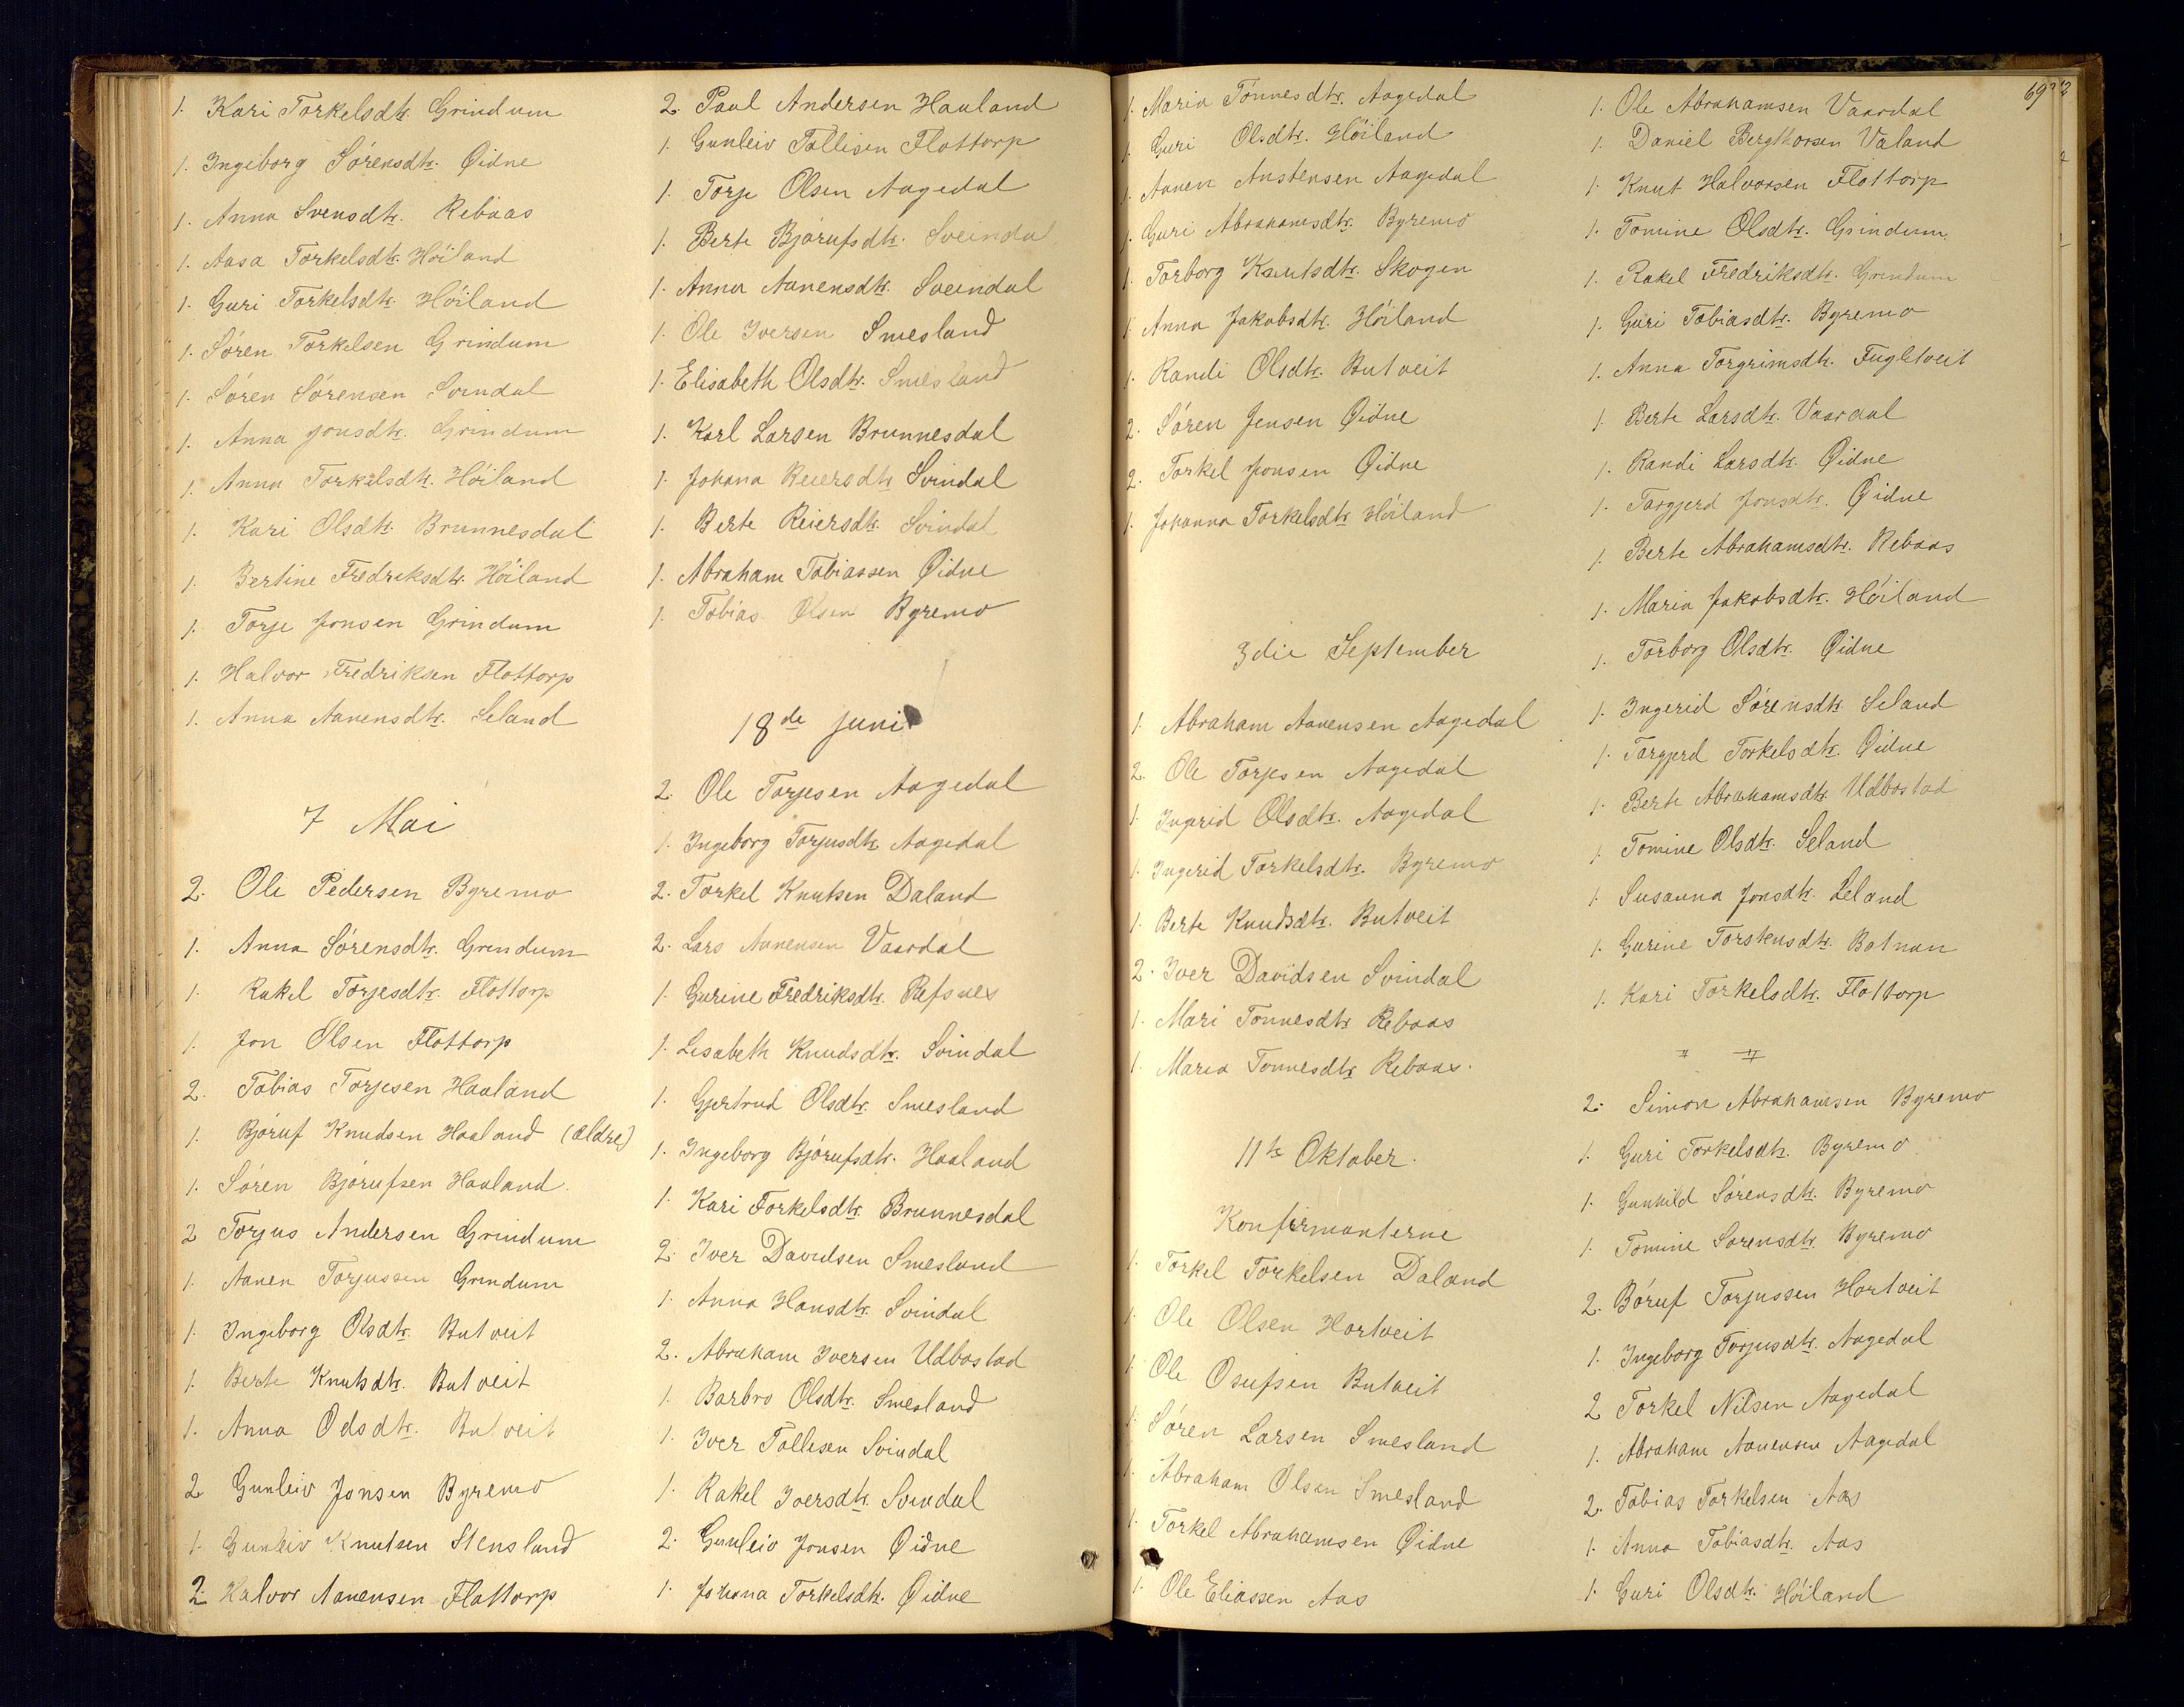 1. Kari Torkelsdtr. Grindum
1. Ingeborg Sørensdtr. Øidne
1. Anna Svensdtr. Rebaas
1. Aasa Torkelsdtr. Höiland
1. Guri Torkelsdtr. Höiland
1. Søren Torkelsen Grindum
1. Søren Sørensen Svindal
1. Anna Jonsdtr. Grindum
1. Anna Torkelsdtr. Höiland
1. Kari Olsdtr. Brunnesdal
1. Bertine Fredriksdtr. Höiland
1. Torje Jonsen Grindum
1. Halvor Fredriksen Flottorp
1. Anna Aanensdtr. Seland
7 Mai
2. Ole Pedersen Byremo
1. Anna Sørensdtr. Grindum
1. Rakel Torjesdtr. Flottorp
1. Jon Olsen Flottorp
2. Tobias Torjesen Haaland
1. Bjøruf Knudsen Haaland (ældre)
1. Søren Bjørufsen Haaland.
2 Torjus Andersen Grindum
1. Aanen Torjussen Grindum
1. Ingeborg Olsdtr. Butveit
1. Berte Knutsdtr. Butveit
1. Anna Odsdtr. Butveit
2 Gunleiv Jonsen Byremo
1. Gunleiv Knutsen Stensland
2 Halvor Aanensen Flottorp
2. Paul Andersen Haaland
1. Gunleiv Tollisen Flottorp
1. Torje Olsen Aagedal
1. Berte Bjørufsdtr. Sveindal
1. Anna Aanensdtr. Sveindal
1. Ole Iversen Smesland
1. Elisabeth Olsdtr. Smesland
1. Karl Larsen Brunnesdal
1. Johana Reiersdtr. Svindal
1. Berte Reiersdtr. Svindal
1. Abraham Tobiassen Øidne
1. Tobias Olsen Byremo
18de Juni
2. Ole Torjesen Aagedal
1. Ingeborg Torjusdtr. Aagedal
2. Torkel Knutsen Daland
2. Lars Aanensen Vaardal
1. Gurine Fredriksdtr. Refsnes
1. Lisabeth Knudsdtr. Svindal
1. Gjertrud Olsdtr. Smesland
1. Ingeborg Bjørufsdtr. Haaland
1. Kari Torkelsdtr. Brunnesdal
2. Iver Davidsen Smesland
1. Anna Hansdtr. Svindal
2. Abraham Iversen Udbostad
1. Barbro Olsdtr. Smesland
1. Iver Tollesen Svindal
1. Rakel Iversdtr. Svindal
2. Gunleiv Jonsen Øidne
1. Johana Torkelsdtr. Øidne
1. Maria Tønnesdtr. Aagedal
1. Guri Olsdtr. Höiland
1. Aanen Anstensen Aagedal
1. Guri Abrahamsdtr. Byremo
1. Torborg Knutsdtr. Skogen
1. Anna Jakobsdtr. Höiland
1. Randi Olsdtr. Butveit
2. Søren Jensen Øidne
2. Torkel Jonsen Øidne
1. Johanna Torkelsdtr. Höiland
3die September
1. Abraham Aanensen Aagedal
2. Ole Torjesen Aagedal
1. Ingerid Olsdtr. Aagedal
1. Ingerid Torkelsdtr. Byremo
1. Berte Knudsdtr. Butveit
2. Iver Davidsen Svindal
1. Mari Tønnesdtr. Rebaas
1. Maria Tønnesdtr. Rebaas.
11te Oktober.
Konfirmanterne
1. Torkel Torkelsen Daland
1. Ole Olsen Hortveit
1. Ole Osufsen Butveit
1. Søren Larsen Smesland
1. Abraham Olsen Smesland
1. Torkel Abrahamsen Øidne
1. Ole Eliassen Aas
69
1. Ole Abrahamsen Vaardal
1. Daniel Bergthorsen Valand
1. Knut Halvorsen Flottorp
1. Tomine Olsdtr. Grindum
1. Rakel Fredriksdtr. Grindum
1. Guri Tobiasdtr. Byremo
1. Anna Torgrimsdtr. Fugletveit
1. Berte Larsdtr. Vaardal
1. Randi Larsdtr. Øidne
1. Targjerd Jonsdtr. Øidne
1. Berte Abrahamsdtr. Rebaas
1. Maria Jakobsdtr. Höiland
1. Torborg Olsdtr. Øidne
1. Ingerid Sørensdtr. Seland
1. Targjerd Torkelsdtr. Øidne
1. Berte Abrahamsdtr. Udbostad
1. Tomine Olsdtr. Seland
1. Susanna Jonsdtr. Leland
1. Gurine Torskusdtr. Botnan
1. Kari Torkelsdtr. Flottorp
2. Simon Abrahamsen Byremo
1. Guri Torkelsdtr. Byremo.
1. Gunhild Sørensdtr. Byremo
1. Tomine Sørensdtr. Byremo
2. Børuf Torjussen Hortveit
1. Ingeborg Torjusdtr. Aagedal
2 Torkel Nilsen Aagedal
1. Abraham Aanensen Aagedal
2. Tobias Torkelsen Aas
1. Anna Tobiasdtr. Aas
1. Guri Olsdtr. Höiland